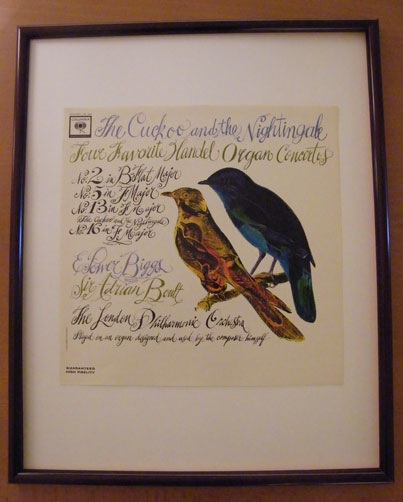 The Cuckoo and the Nightingale
Four Favorite Handel Organ Concertos
No. 2 in B Flat Major
No. 5 in F Major
No. 13 in F Major
(The Cuckoo and the Nightingale)
No. 16 in F Major
E. Power Biggs
Sir Adrian Boult
The London Philharmonic Orchestra
Played on an organ designed and used by the composer himself
GUARANTEED
HIGH FIDELITY